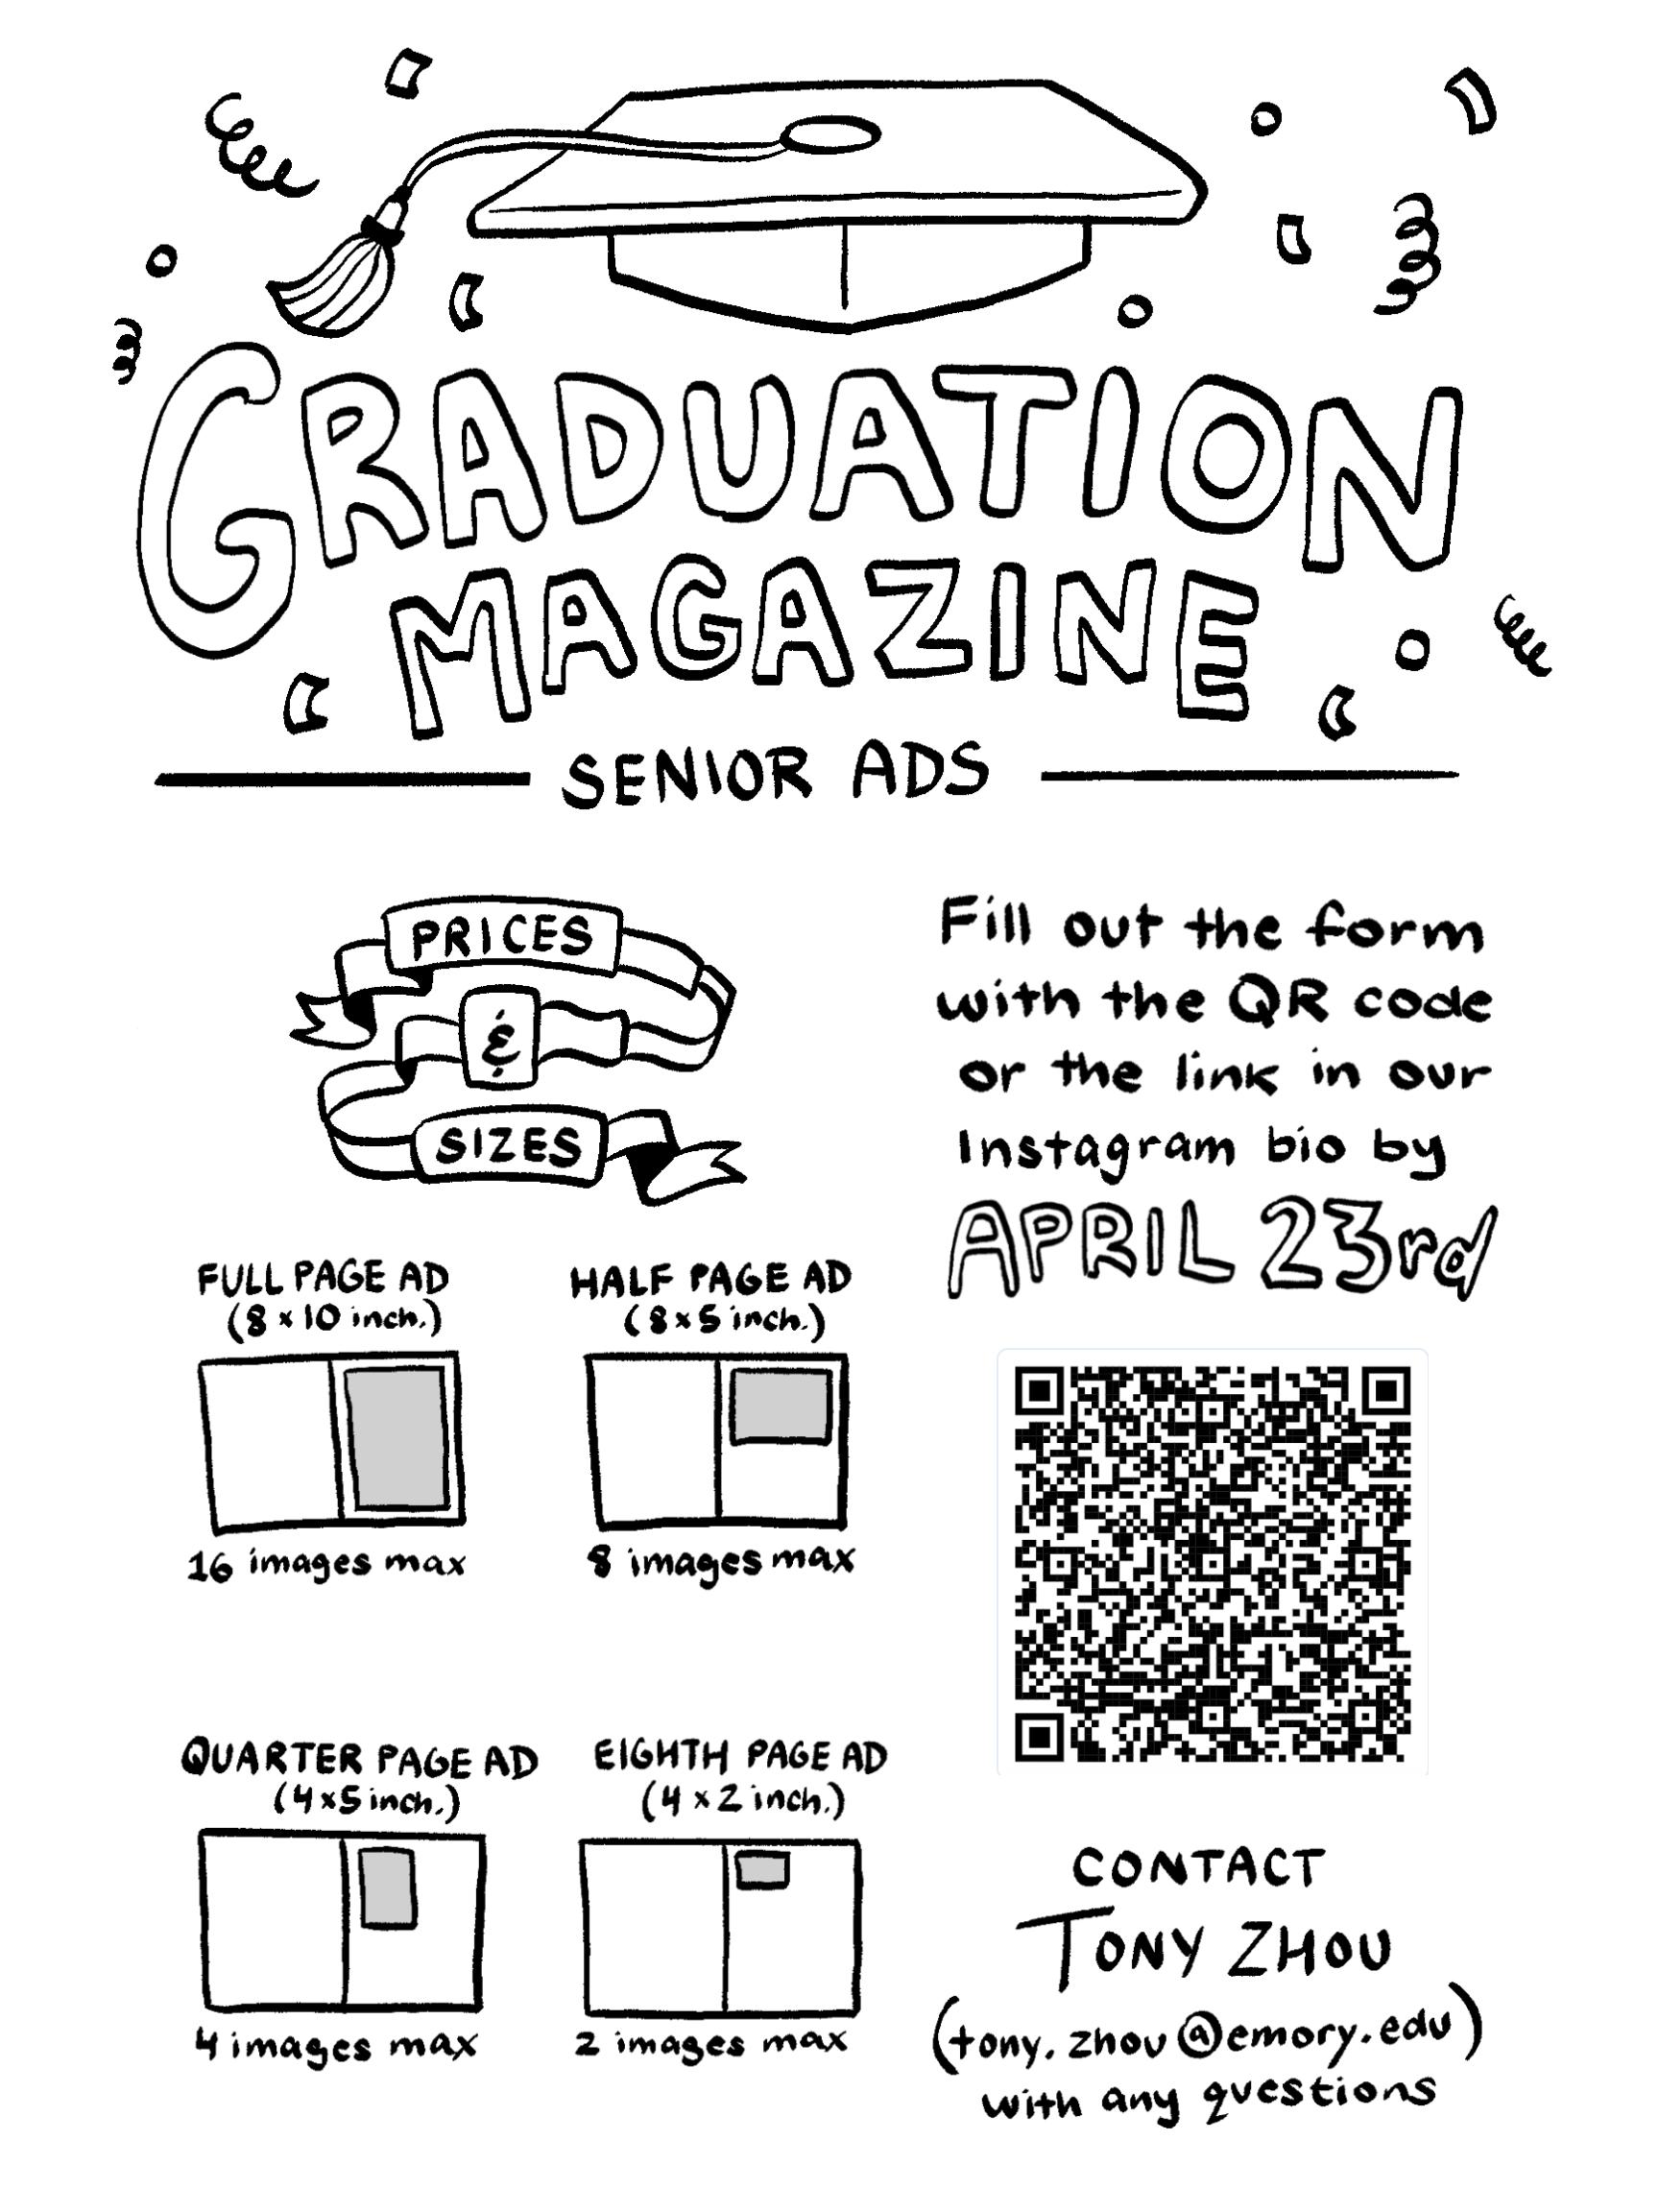 GRADUATION
MAGAZINE
SENIOR ADS
PRICES
&
SIZES
FULL PAGE AD
(8 x 10 inch.)
16 images max
HALF PAGE AD
(8 x 5 inch.)
8 images max
QUARTER PAGE AD
(4 x 5 inch.)
4 images max
EIGHTH PAGE AD
(4 x 2 inch.)
2 images max
Fill out the form
with the QR code
or the link in our
Instagram bio by
APRIL 23rd
CONTACT
TONY ZHOU
(tony.zhou@emory.edu)
with any questions